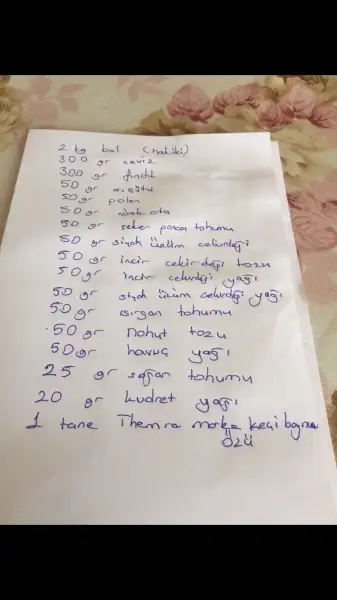 2 kg bal (hakiki)
300 gr ceviz
300 gr fındık
50 gr arı sütü
50 gr polen
50 gr çörek otu
50 gr şeker pancar tohumu
50 gr siyah üzüm çekirdeği
50 gr incir çekirdeği tozu
50 gr incir çekirdeği yağı
50 gr siyah üzüm çekirdeği yağı
50 gr ısırgan tohumu
50 gr nohut tozu
50 gr havuç yağı
25 gr soğan tohumu
20 gr kudret yağı
1 tane Themra marka keçi boynuzu
özü